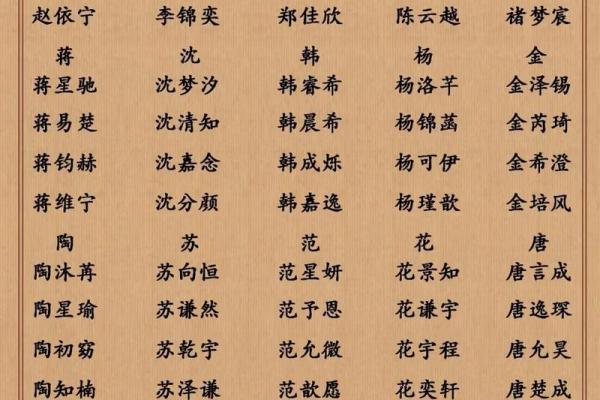 赵依宁 李锦奕 郑佳欣 陈云越 褚梦宸
蒋 沈 韩 杨 金
蒋星驰 沈梦汐 韩睿希 杨洛芊 金泽锡
蒋易楚 沈清知 韩晨希 杨锦菡 金芮琦
蒋钧赫 沈嘉念 韩成烁 杨可伊 金希澄
蒋维宁 沈分颜 韩嘉逸 杨瑾歆 金培风
陶 苏 范 花 唐
陶沐苒 苏向恒 范星妍 花景知 唐言成
陶星瑜 苏谦然 范予恩 花谦宇 唐逸琛
陶初窈 苏乾宇 范允徽 花宇程 唐允昊
陶知楠 苏泽谦 范歆愿 花奕轩 唐楚成